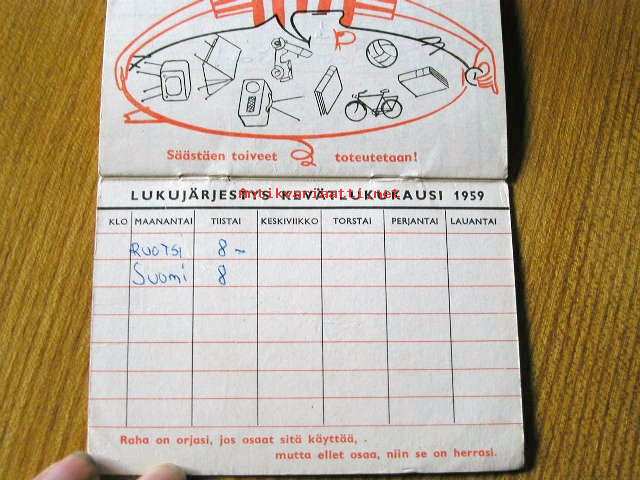 Säästäen toiveet toteutetaan!
LUKUJÄRJESTYS KEVÄÄN LUKUKAUSI 1959
KLO MAANANTAI TIISTAI KESKIVIIKKO TORSTAI PERJANTAI LAUANTAI
RUOTSI 8 –
SUOMI 8
Raha on orjasi, jos osaat sitä käyttää, -
mutta ellet osaa, niin se on herrasi.